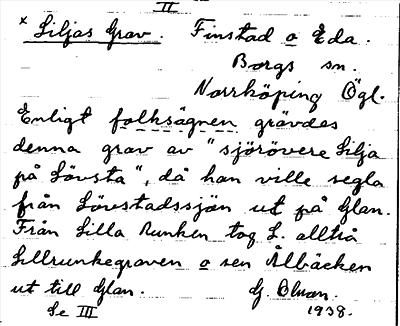 II
x Siljas Grav. Finstad o Eda.
Borgs sn.
Norrköping Ögl.
Enligt folksägnen grävdes
denna grav av "sjörövere Silja
på Lövsta", då han ville segla
från Lövestadssjön ut på Glan.
Från Lilla Runken tog S. alltså
Lillrunkegraven o sen Ålbäcken
ut till Glan. G.
Se III 1938.